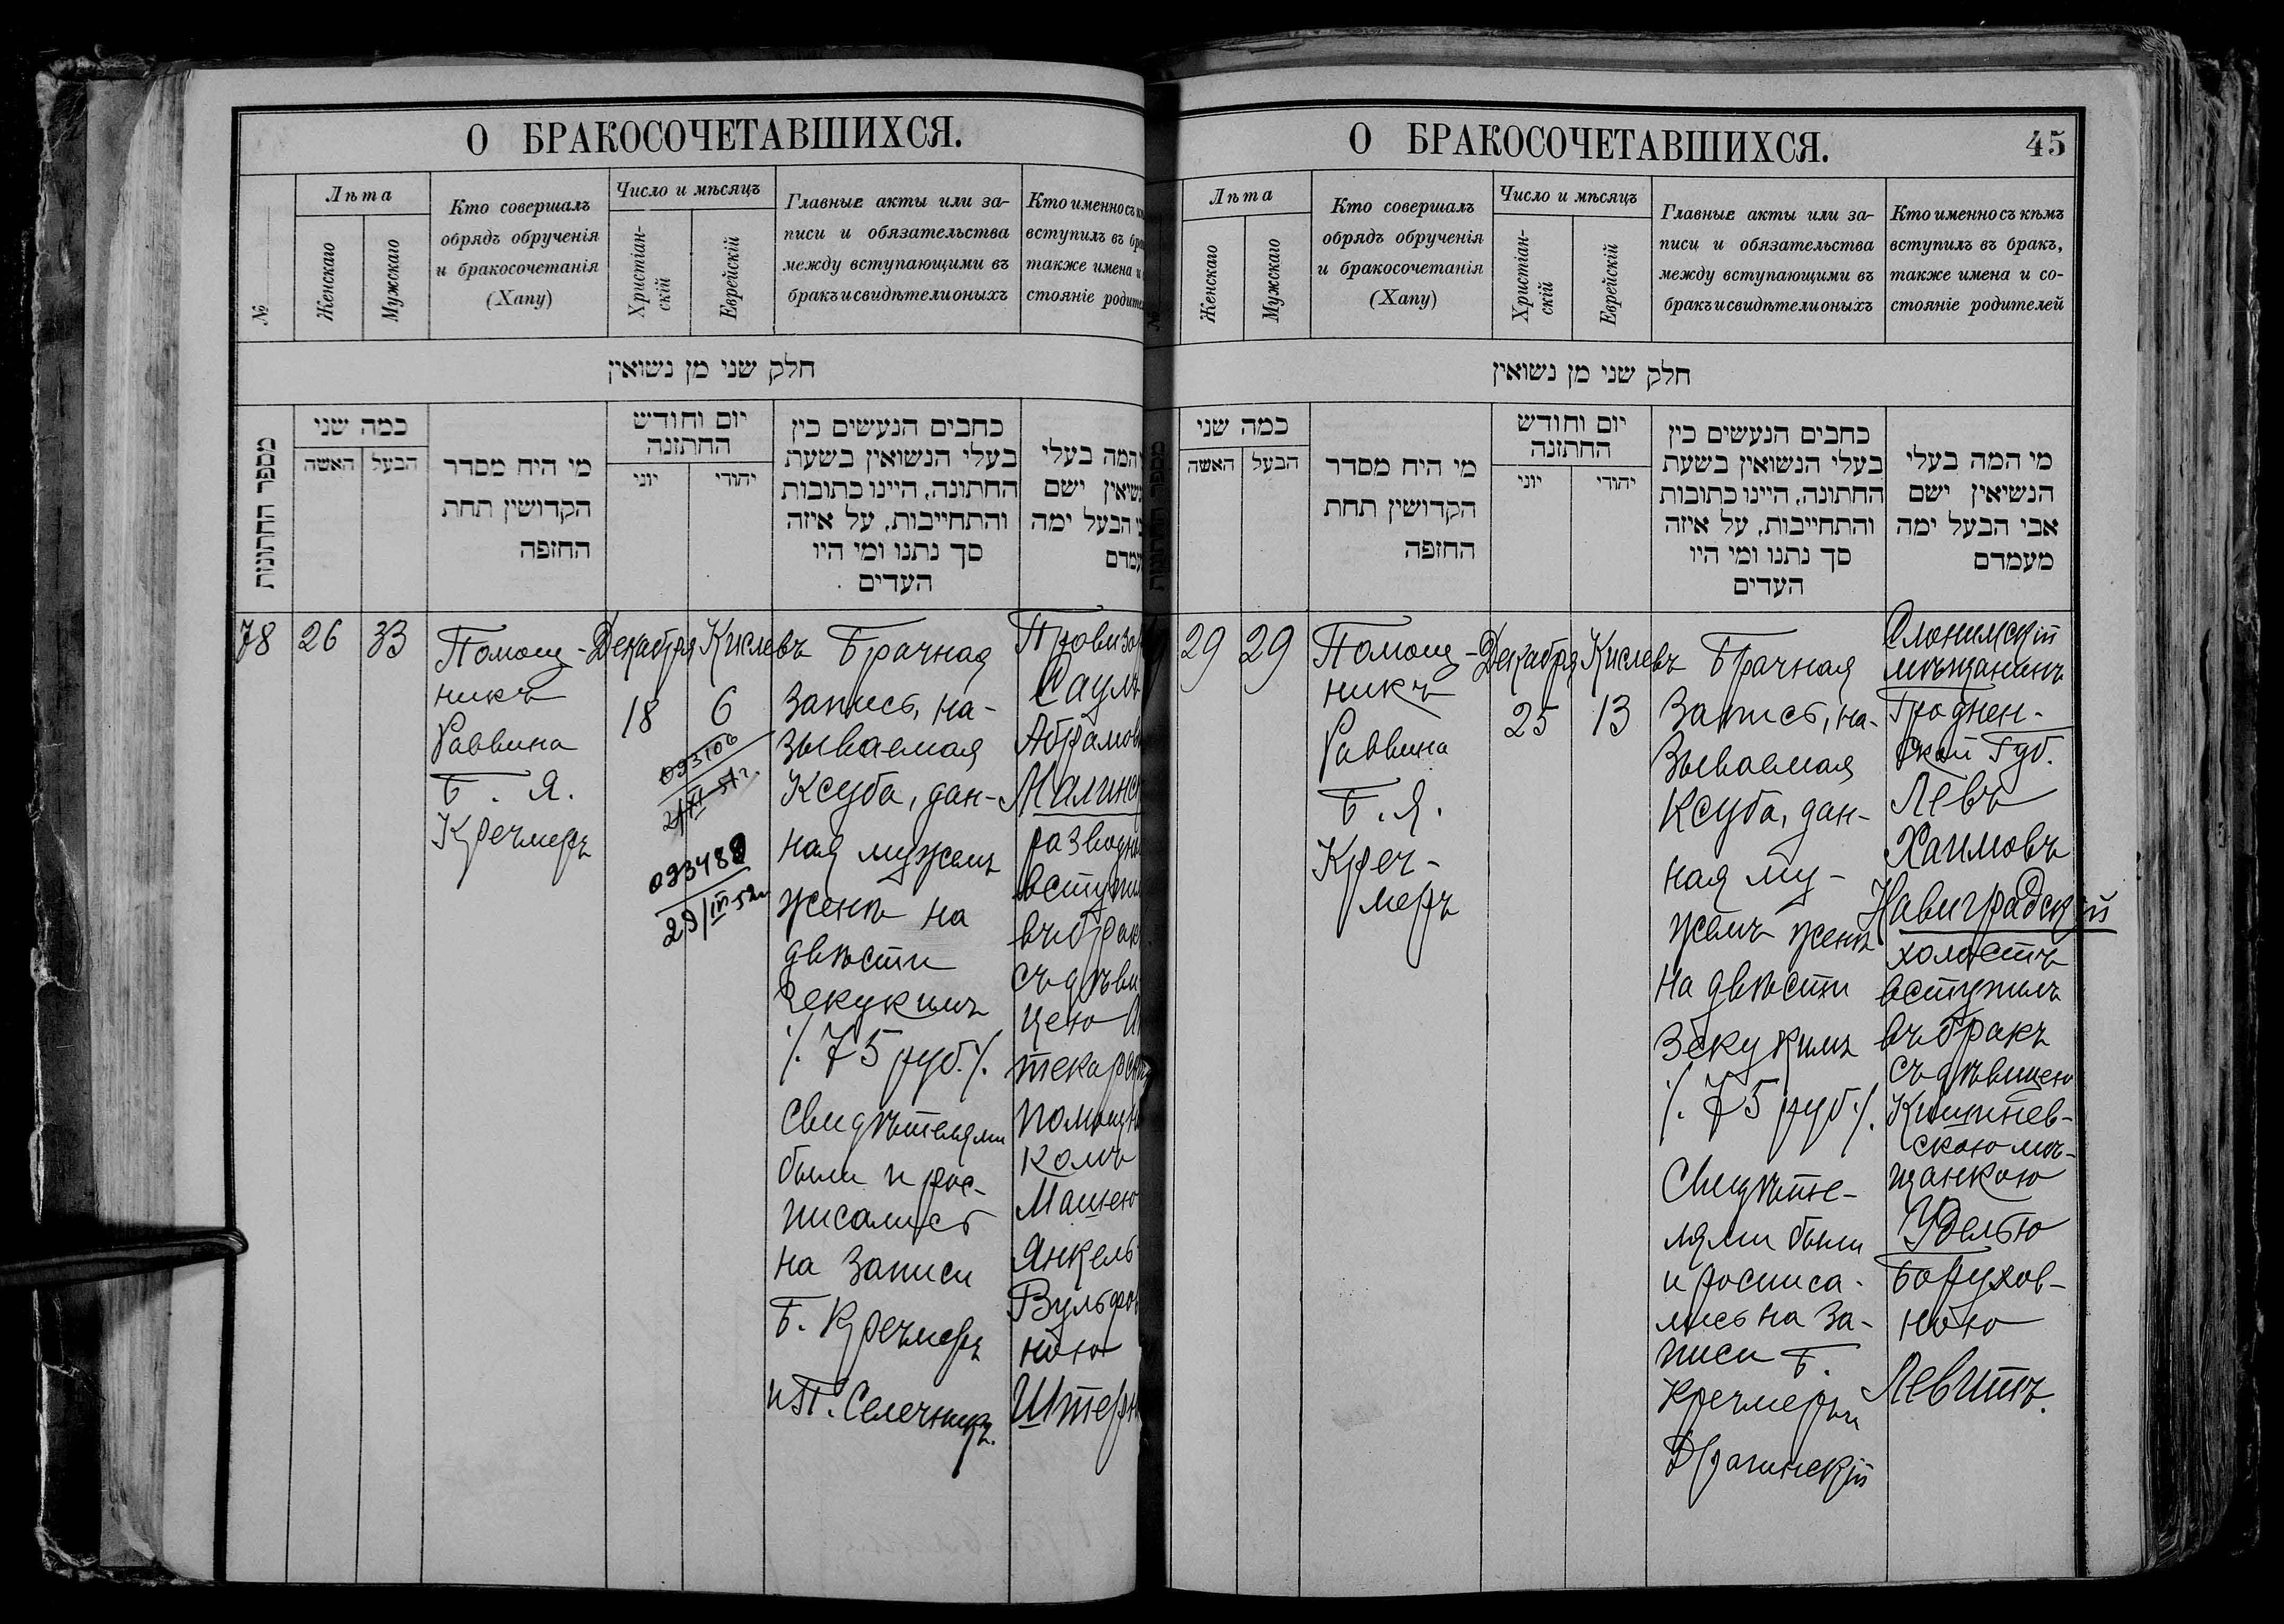 О БРАКОСОЧЕТАВШИХСЯ.
№
Лѣта
Женскаго
Мужскаго
Кто совершалъ
обрядъ обрученія
и бракосочетанія
(Хапу)
Число и мѣсяцъ
Христіан-
скій
Еврейскій
Главные акты или за-
писи и обязательства
между вступающими въ
бракъ и свидѣтели оныхъ
Кто именно съ
вступилъ въ
также имена и
стояніе
חלק שני מן נשואין
מספר החתונות
כמה שני
האשה
הבעל
מי היח מסדר
הקדושין תחת
החזפה
יום וחודש
החתזנה
יוני
יהודי
כחבים הנעשים כין
בעלי הנשואין בשעת
החתונה, היינו כתובות
והתחייבות, על איזה
סך נתנו ומי היו
העדים
המה בעלי
ישם
הבעל ימה
78
26
33
Помощ-
никъ
Раввина
Б. Я.
Кречмеръ
Декабря
18
Кислевъ
6
093106
21/XI-51г.
29/IV-52г
Брачная
запись, на-
зываемая
Ксуба, дан-
ная мужемъ
женѣ на
двѣсти
Зекукимъ
/. 75 руб./.
Свидѣтелями
были и рос-
писались
на записи
Б. Кречмеръ
и П.
Саулъ
вступи
въ брак
съ дѣви
цею А
текарск
помощн
комъ
Машею
Янкель
Вульфов
ною
Штерн
О БРАКОСОЧЕТАВШИХСЯ.
45
Лѣта
Женскаго
Мужскаго
Кто совершалъ
обрядъ обрученія
и бракосочетанія
(Хапу)
Число и мѣсяцъ
Христіан-
скій
Еврейскій
Главные акты или за-
писи и обязательства
между вступающими въ
бракъ и свидѣтели оныхъ
Кто именно съ кѣмъ
вступилъ въ бракъ,
также имена и со-
стояніе родителей
חלק שני מן נשואין
כמה שני
האשה
הבעל
מי היח מסדר
הקדושין תחת
החזפה
יום וחודש
החתזנה
יוני
יהודי
כחבים הנעשים כין
בעלי הנשואין בשעת
החתונה, היינו כתובות
והתחייבות, על איזה
סך נתנו ומי היו
העדים
מי המה בעלי
הנשיאין ישם
אבי הבעל ימה
מעמדם
29
29
Помощ-
никъ
Раввина
Б. Я.
Креч-
меръ
Декабря
25
Кислевъ
13
Брачная
запись, на-
зываемая
Ксуба, дан-
ная му-
жемъ женѣ
на двѣсти
Зекукимъ
/. 75 руб./.
Свидѣте-
лями были
и росписа-
лись на за-
писи Б.
Кречмеръ и
Драгинскій
Слонимскій
мѣщанинъ
Гроднен-
ской Губ.
Левъ
Хаимовъ
Навиградскій
холостъ
вступилъ
въ бракъ
съ дѣвицею
Кишинев-
скою мѣ-
щанкою
Уделью
Борухов-
ною
Левитъ.